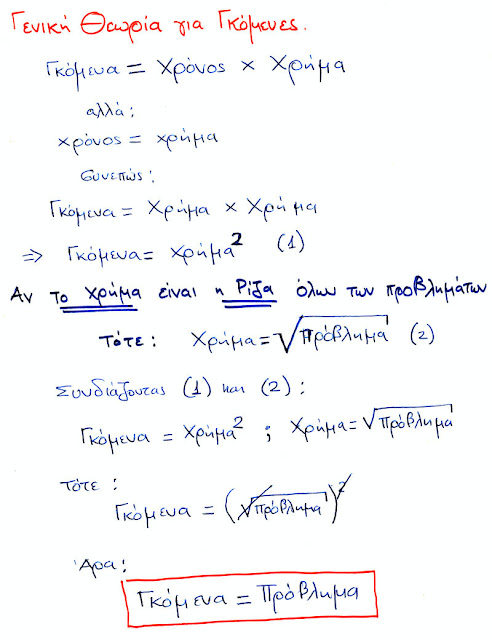 Γενική Θεωρία για Γκόμενες.
Γκόμενα = Χρόνος × Χρήμα
αλλά:
χρόνος = χρήμα
συνεπώς:
Γκόμενα = Χρήμα × Χρήμα
=> Γκόμενα = Χρήμα² (1)
Αν το χρήμα είναι η Ρίζα όλων των προβλημάτων
τότε: Χρήμα = √Πρόβλημα (2)
Συνδιάζοντας (1) και (2):
Γκόμενα = Χρήμα² ; Χρήμα = √Πρόβλημα
τότε:
Γκόμενα = (√Πρόβλημα)²
Άρα:
Γκόμενα = Πρόβλημα